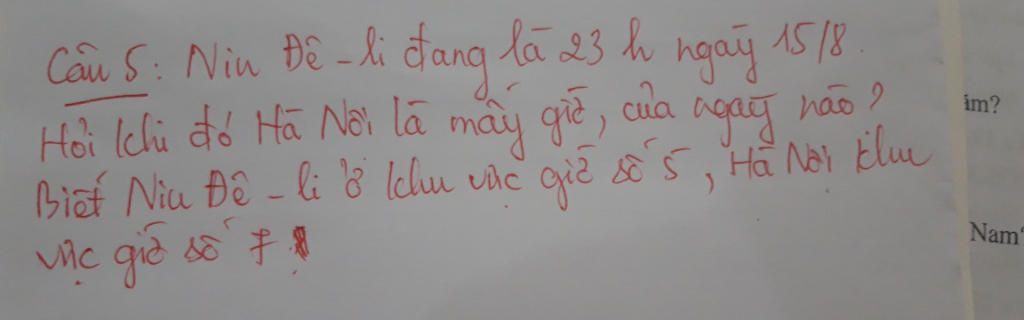 Câu 5: Niu Đê-li đang là 23 h ngày 15/8.
Hỏi khi đó Hà Nội là mấy giờ, của ngày nào?
Biết Niu Đê-li ở khu vực giờ số 5, Hà Nội khu
vực giờ số 7
ăm?
Nam